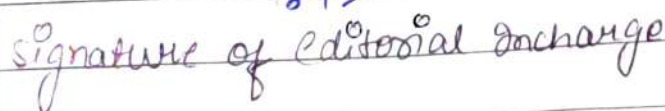 Signature of editorial Incharge